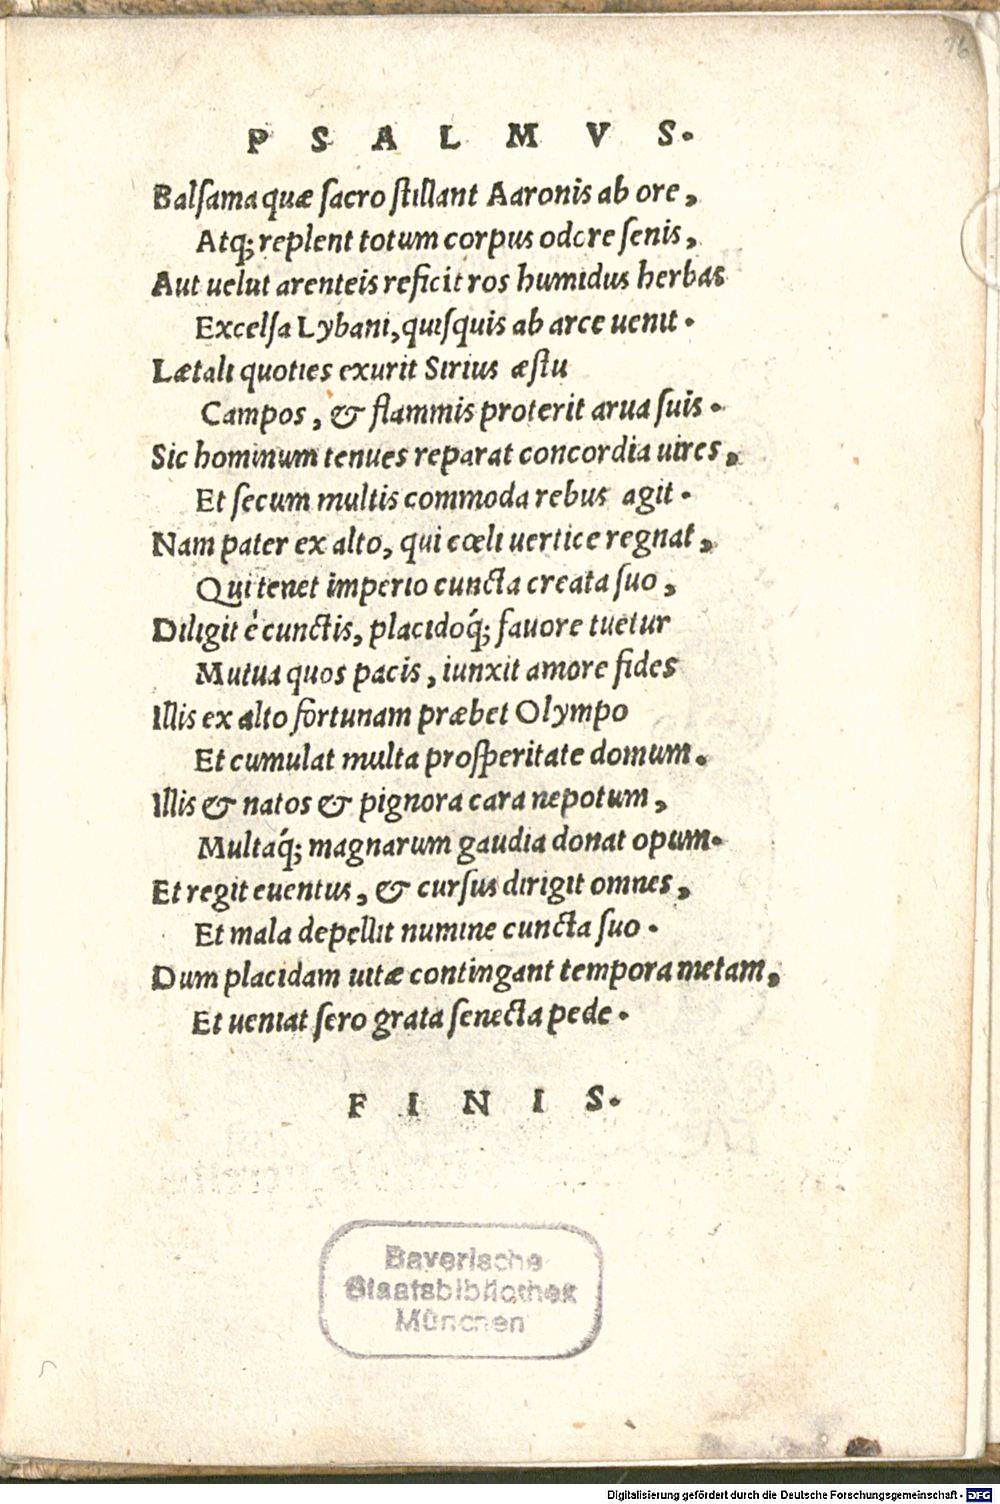 16
P S A L M V S.
Balſama quæ ſacro ſtillant Aaronis ab ore,
Atq; replent totum corpus odore ſenis,
Aut uelut arenteis reficit ros humidus herbas
Excelſa Lybani, quiſquis ab arce uenit.
Lætali quoties exurit Sirius æſtu
Campos, & flammis proterit arua ſuis.
Sic hominum tenues reparat concordia uires,
Et ſecum multis commoda rebus agit.
Nam pater ex alto, qui cœli uertice regnat,
Qui tenet imperio cuncta creata ſuo,
Diligit è cunctis, placidoq́; fauore tuetur
Mutua quos pacis, iunxit amore fides
Illis ex alto fortunam præbet Olympo
Et cumulat multa proſperitate domum.
Illis & natos & pignora cara nepotum,
Multaq́; magnarum gaudia donat opum.
Et regit euentus, & curſus dirigit omnes,
Et mala depellit numine cuncta ſuo.
Dum placidam uitæ contingant tempora metam,
Et ueniat ſero grata ſenecta pede.
F I N I S.
Bayerische
Staatsbibliothek
München
Digitalisierung gefördert durch die Deutsche Forschungsgemeinschaft - DFG